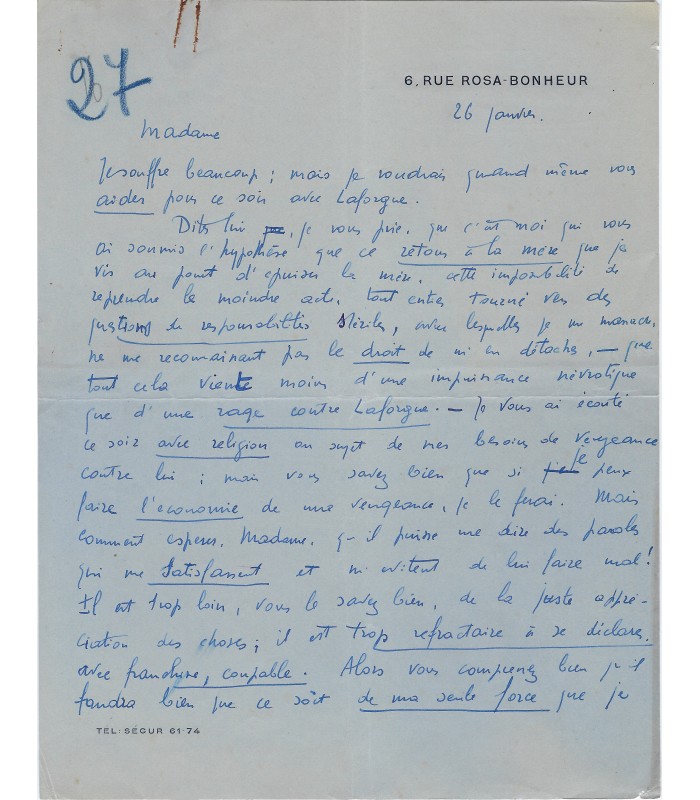 27
6, RUE ROSA-BONHEUR
26 janvier.
Madame
Je souffre beaucoup ; mais je voudrais quand même vous
aider pour ce soir avec Laforgue.
Dites lui , je vous prie, que c'est moi qui vous
ai soumis l'hypothèse que ce retour à la mère que je
vis au point d'épuiser la mère, cette impossibilité de
reprendre le moindre acte, tout entier tourné vers des
questions de responsabilités stériles, avec lesquelles je me
ne me reconnaissant pas le droit de m'en détacher, — que
tout cela vient moins d'une impuissance névrotique
que d'une rage contre Laforgue. — Je vous ai écouté
ce soir avec religion au sujet de mes besoins de vengeance
contre lui ; mais vous savez bien que si je peux
faire l'économie de une vengeance, je le ferai. Mais
comment espérer, Madame, qu'il puisse me dire des paroles
qui me satisfassent et m'évitent de lui faire mal !
Il est trop loin, vous le savez bien, de la juste appré-
ciation des choses ; il est trop réfractaire à se déclarer,
avec franchise, coupable. Alors vous comprenez bien qu'il
faudra bien que ce soit de ma seule force que je
TEL: SÉGUR 61-74